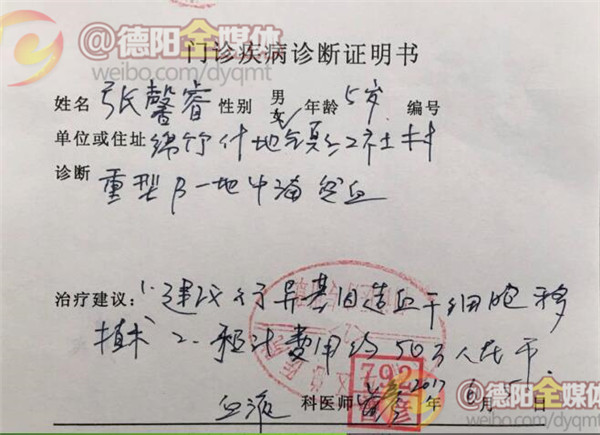 @德阳全媒体
weibo.com/dyqmt
门诊疾病诊断证明书
姓名 张馨睿 性别 男 女 年龄 5岁 编号
单位或住址 绵竹什地镇红社村
诊断 重型β-地中海贫血
治疗建议: 1.建议行异基因造血干细胞移
植术 2.预计费用约50万人民币.
792
血液 科医师 2017年 6月 日
@德阳全媒体
weibo.com/dyqmt